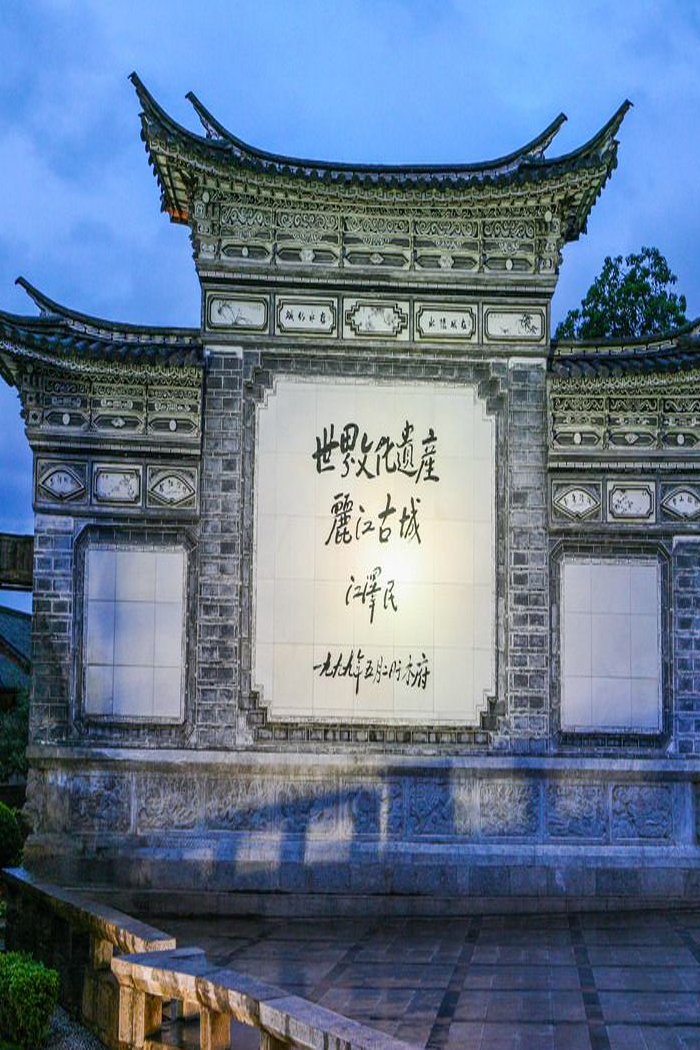 世界文化遺産
麗江古城
江澤民
一九九九年五月二日于木府